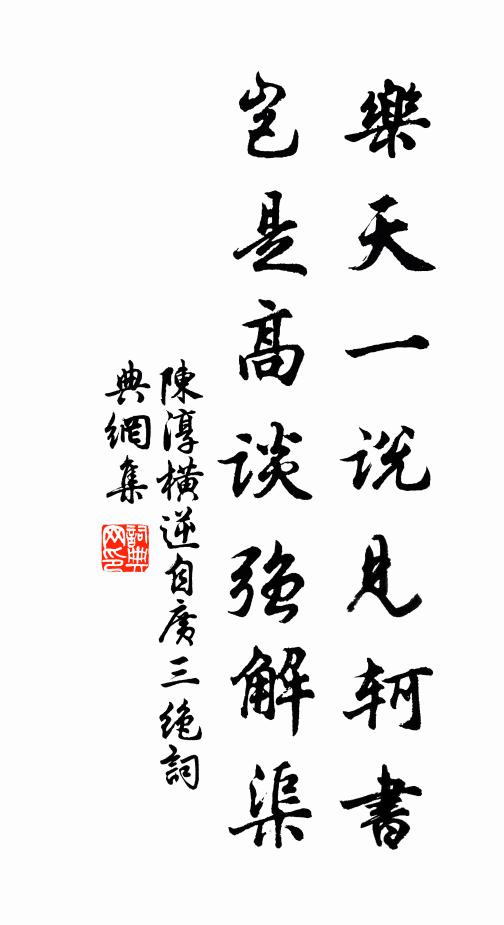 樂天一説見軻書
豈是高談強解渠
陳淳橫逆自廣三絶詞
典網集
詞典網印